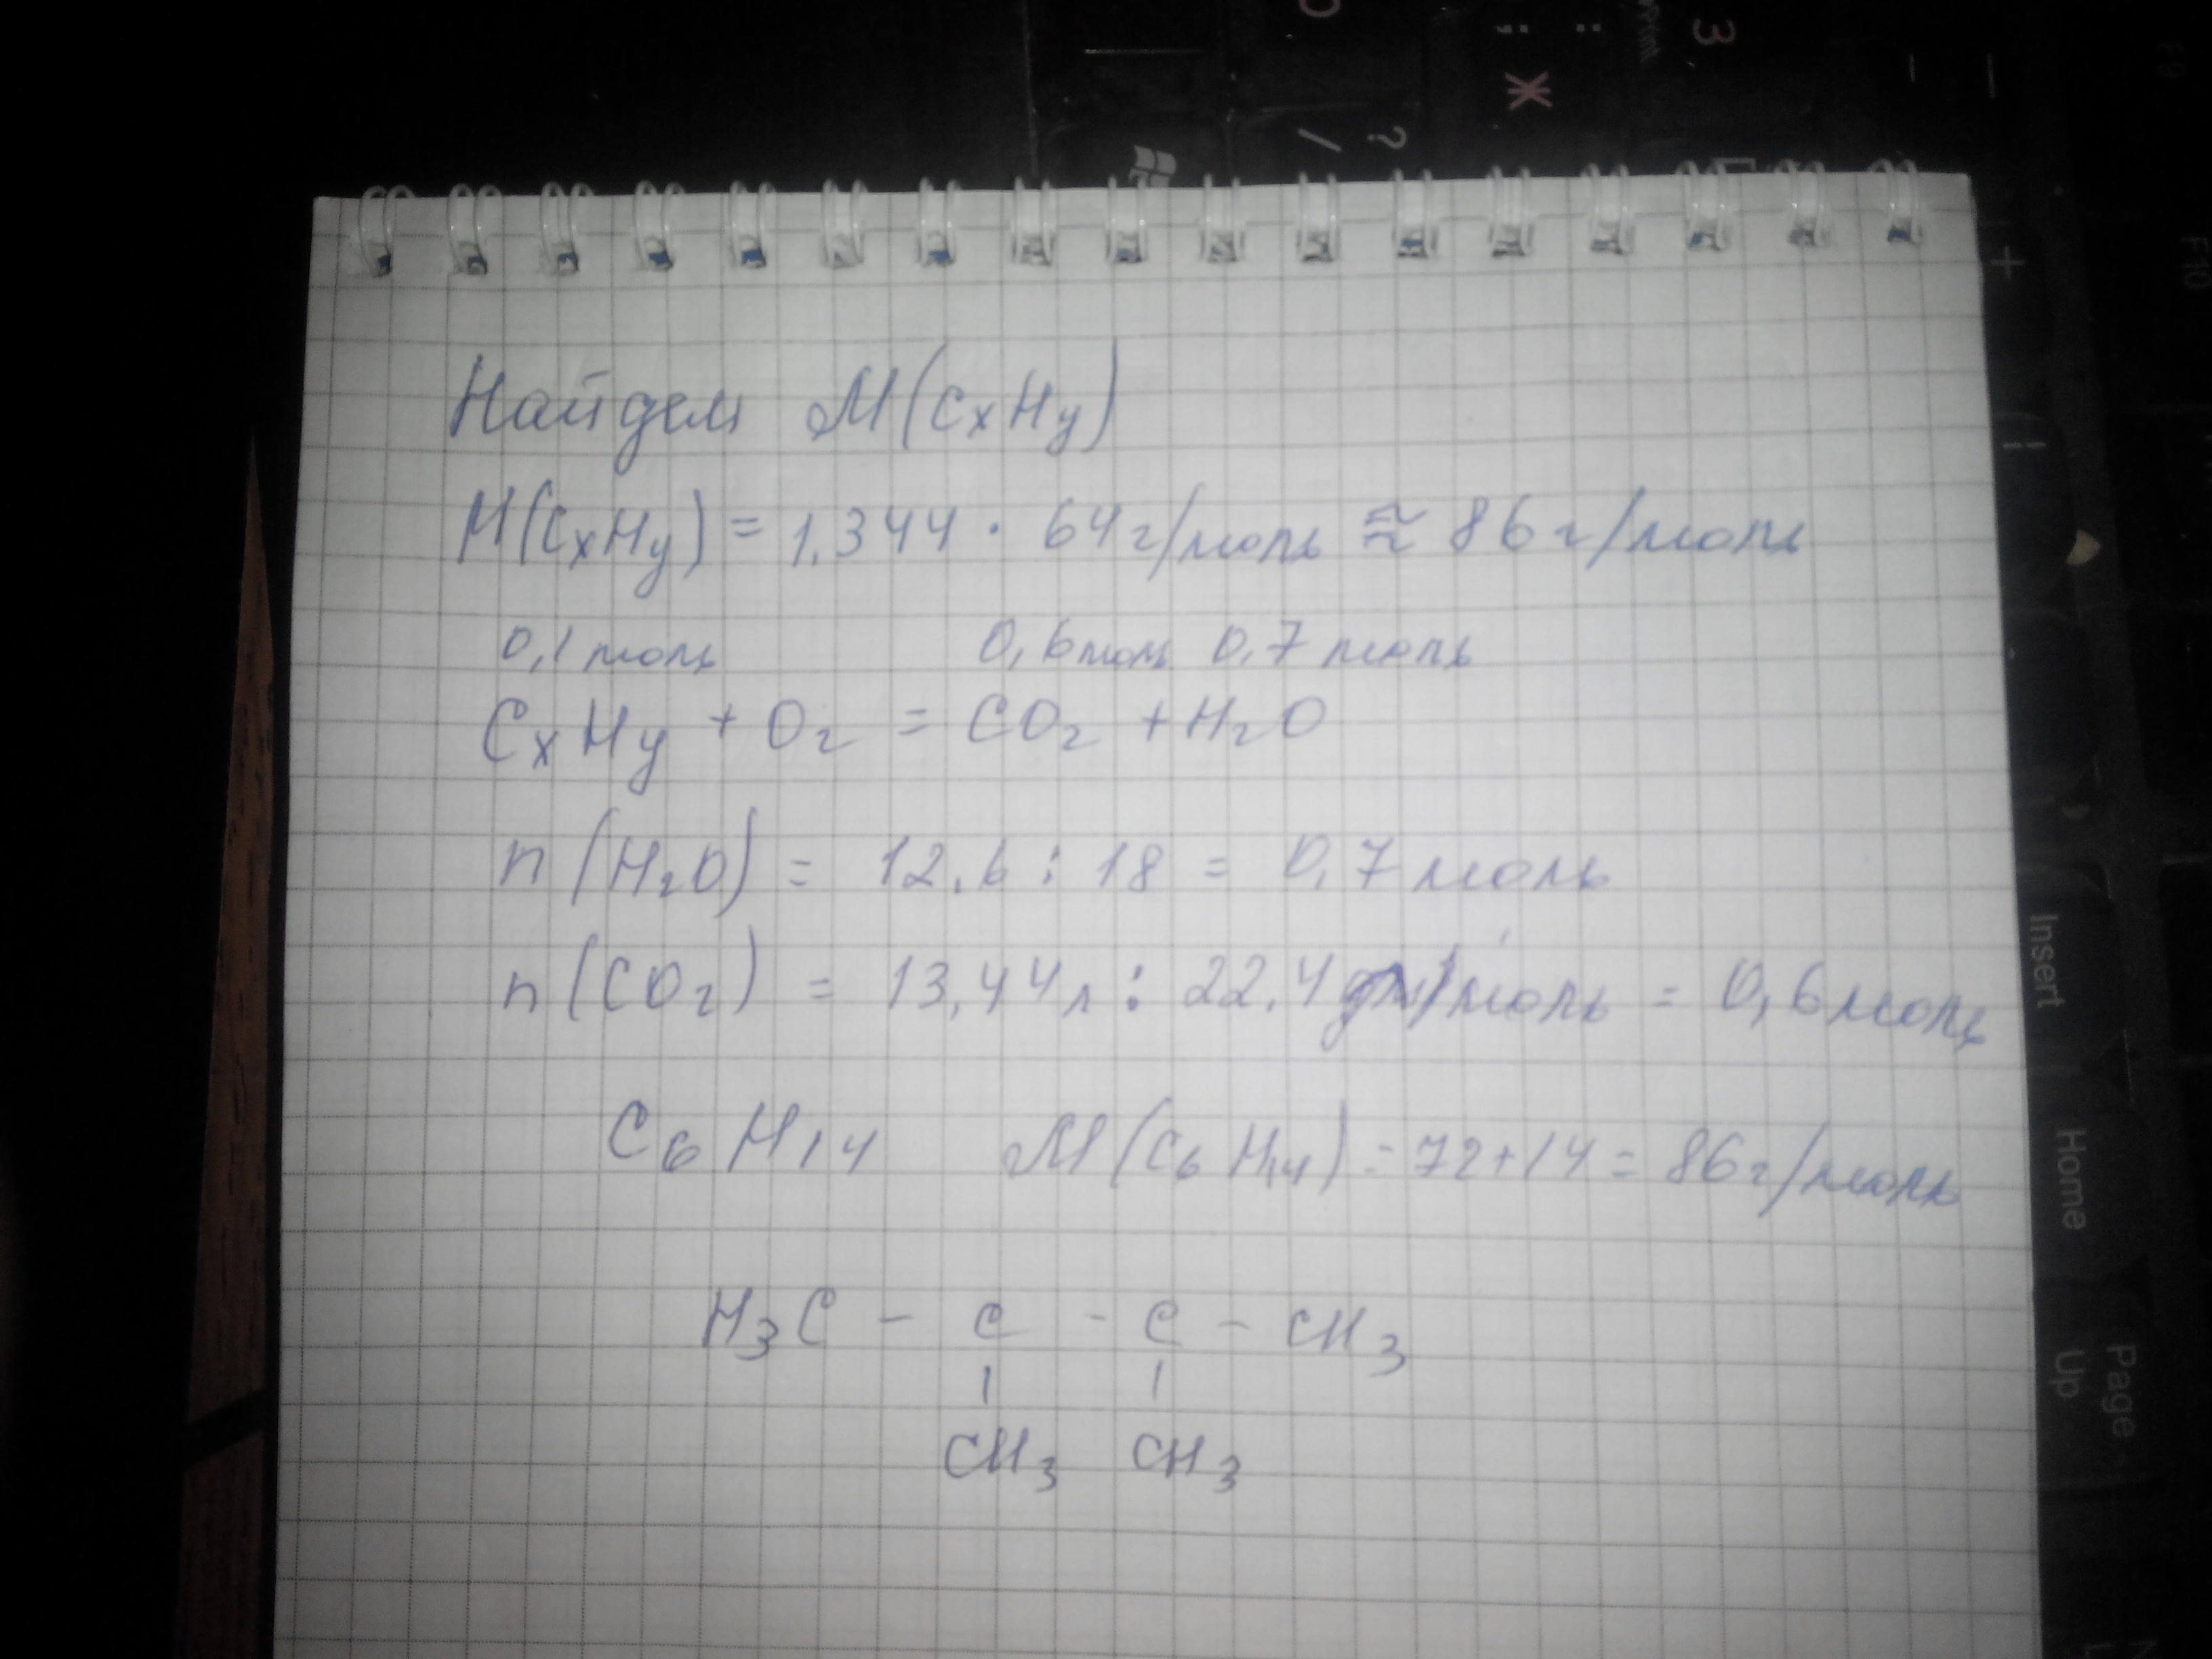 Найдем M(CxHy)
M(CxHy) = 1.344 · 64 г/моль ≈ 86 г/моль
0,1 моль 0,6 моль 0,7 моль
CxHy + O2 = CO2 + H2O
n(H2O) = 12.6 : 18 = 0,7 моль
n(CO2) = 13,44 л : 22.4 /моль = 0,6 моль
C6H14 M(C6H14) = 72+14 = 86 г/моль
H3C - C - C - CH3
CH3 CH3
Insert
Home
Page Up
F10
Ж
З